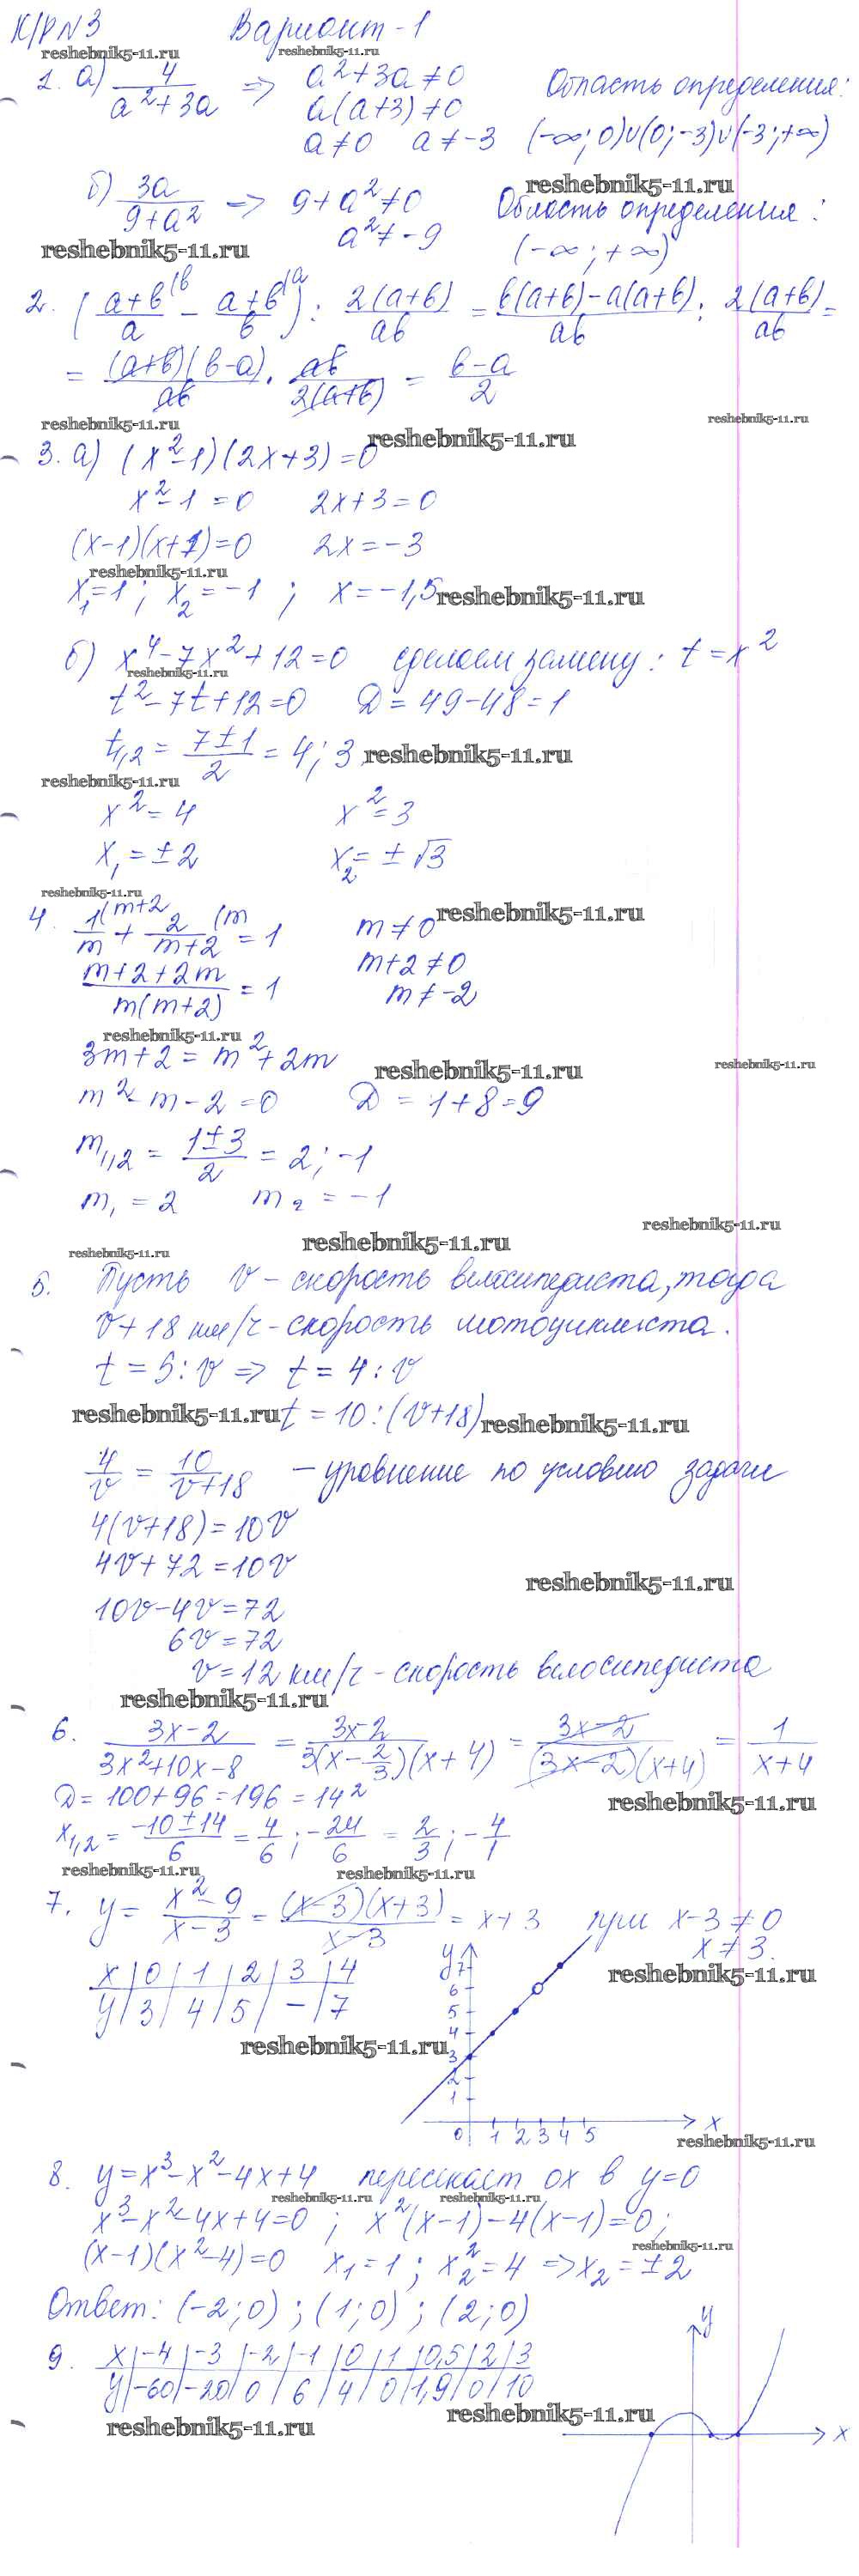 К/Р №3 Вариант-1
reshebnik5-11.ru reshebnik5-11.ru
1. а) 4/(a²+3a) => a²+3a≠0 Область определения:
a(a+3)≠0
a≠0 a≠-3 (-∞;0)∪(0;-3)∪(-3;+∞)
reshebnik5-11.ru
б) 3a/(9+a²) => 9+a²≠0 Область определения:
reshebnik5-11.ru a²≠-9 (-∞;+∞)
2. ((a+b)/a (b - (a+b)/b (a) : 2(a+b)/ab = (b(a+b)-a(a+b))/ab : 2(a+b)/ab =
= (a+b)(b-a)/ab · ab/2(a+b) = (b-a)/2
reshebnik5-11.ru reshebnik5-11.ru reshebnik5-11.ru
3. а) (x²-1)(2x+3)=0
x²-1=0 2x+3=0
(x-1)(x+1)=0 2x=-3
reshebnik5-11.ru
x₁=1; x₂=-1; x=-1,5 reshebnik5-11.ru
б) x⁴-7x²+12=0 сделаем замену: t=x²
reshebnik5-11.ru
t²-7t+12=0 D=49-48=1
t₁,₂ = (7±1)/2 = 4; 3 reshebnik5-11.ru
reshebnik5-11.ru
x²=4 x²=3
x₁=±2 x₂=±√3
reshebnik5-11.ru
4. 1/m (m+2 + 2/(m+2) (m = 1 m≠0 reshebnik5-11.ru
(m+2+2m)/(m(m+2)) = 1 m+2≠0
m≠-2
reshebnik5-11.ru
3m+2=m²+2m reshebnik5-11.ru reshebnik5-11.ru
m²-m-2=0 D=1+8=9
m₁,₂ = (1±3)/2 = 2; -1
m₁=2 m₂=-1
reshebnik5-11.ru reshebnik5-11.ru reshebnik5-11.ru
5. Пусть v - скорость велосипедиста, тогда
v+18 км/ч - скорость мотоциклиста.
t=S:v => t=4:v
reshebnik5-11.ru t=10:(v+18) reshebnik5-11.ru
4/v = 10/(v+18) - уравнение по условию задачи
4(v+18)=10v
4v+72=10v
reshebnik5-11.ru
10v-4v=72
6v=72
v=12 км/ч - скорость велосипедиста
reshebnik5-11.ru
6. (3x-2)/(3x²+10x-8) = (3x-2)/(3(x-2/3)(x+4)) = (3x-2)/((3x-2)(x+4)) = 1/(x+4)
D=100+96=196=14² reshebnik5-11.ru
x₁,₂ = (-10±14)/6 = 4/6; -24/6 = 2/3; -4/1
reshebnik5-11.ru reshebnik5-11.ru
7. y = (x²-9)/(x-3) = (x-3)(x+3)/(x-3) = x+3 при x-3≠0
x≠3.
x|0|1|2|3|4 reshebnik5-11.ru
y|3|4|5|-|7
reshebnik5-11.ru
y
7
6
5
4
3
2
1
0 1 2 3 4 5 x
reshebnik5-11.ru
8. y=x³-x²-4x+4 пересекает ox в y=0
reshebnik5-11.ru reshebnik5-11.ru
x³-x²-4x+4=0; x²(x-1)-4(x-1)=0;
reshebnik5-11.ru
(x-1)(x²-4)=0 x₁=1; x₂²=4 => x₂=±2
Ответ: (-2;0); (1;0); (2;0)
9. x|-4|-3|-2|-1|0|1|0,5|2|3
y|-60|-20|0|6|4|0|1,9|0|10
reshebnik5-11.ru reshebnik5-11.ru
y
x